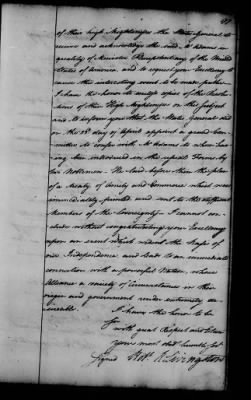 of their high Mightinesses the States General to
receive and acknowledge the said Mr Adams in
quality of Minister Plenipotentiary of the United
States of America, and to request your Excellency to
cause this interesting event to be made public.
I have the honor to enclose copies of the Resolu-
tions of their High Mightinesses on this subject
and to inform you that the States General did
on the 23d day of April appoint a grand Com-
mittee to confer with Mr Adams to whom ha-
ving been introduced in the usual Form by
two Noblemen. He laid before them the plan
of a treaty of Amity and Commerce which was
immediately printed and sent to the different
Members of the Sovereignty. I cannot con-
clude without congratulating your Excellency
upon an event which
our Independence and leads to an immediate
connection with a powerful Nation, whose
Alliance a variety of Circumstances in their
origin and government render extremely de-
sireable.
I have the honor to be
Sir
with great Respect and Esteem
your most obt humble Set
Signed Robt R Livingston